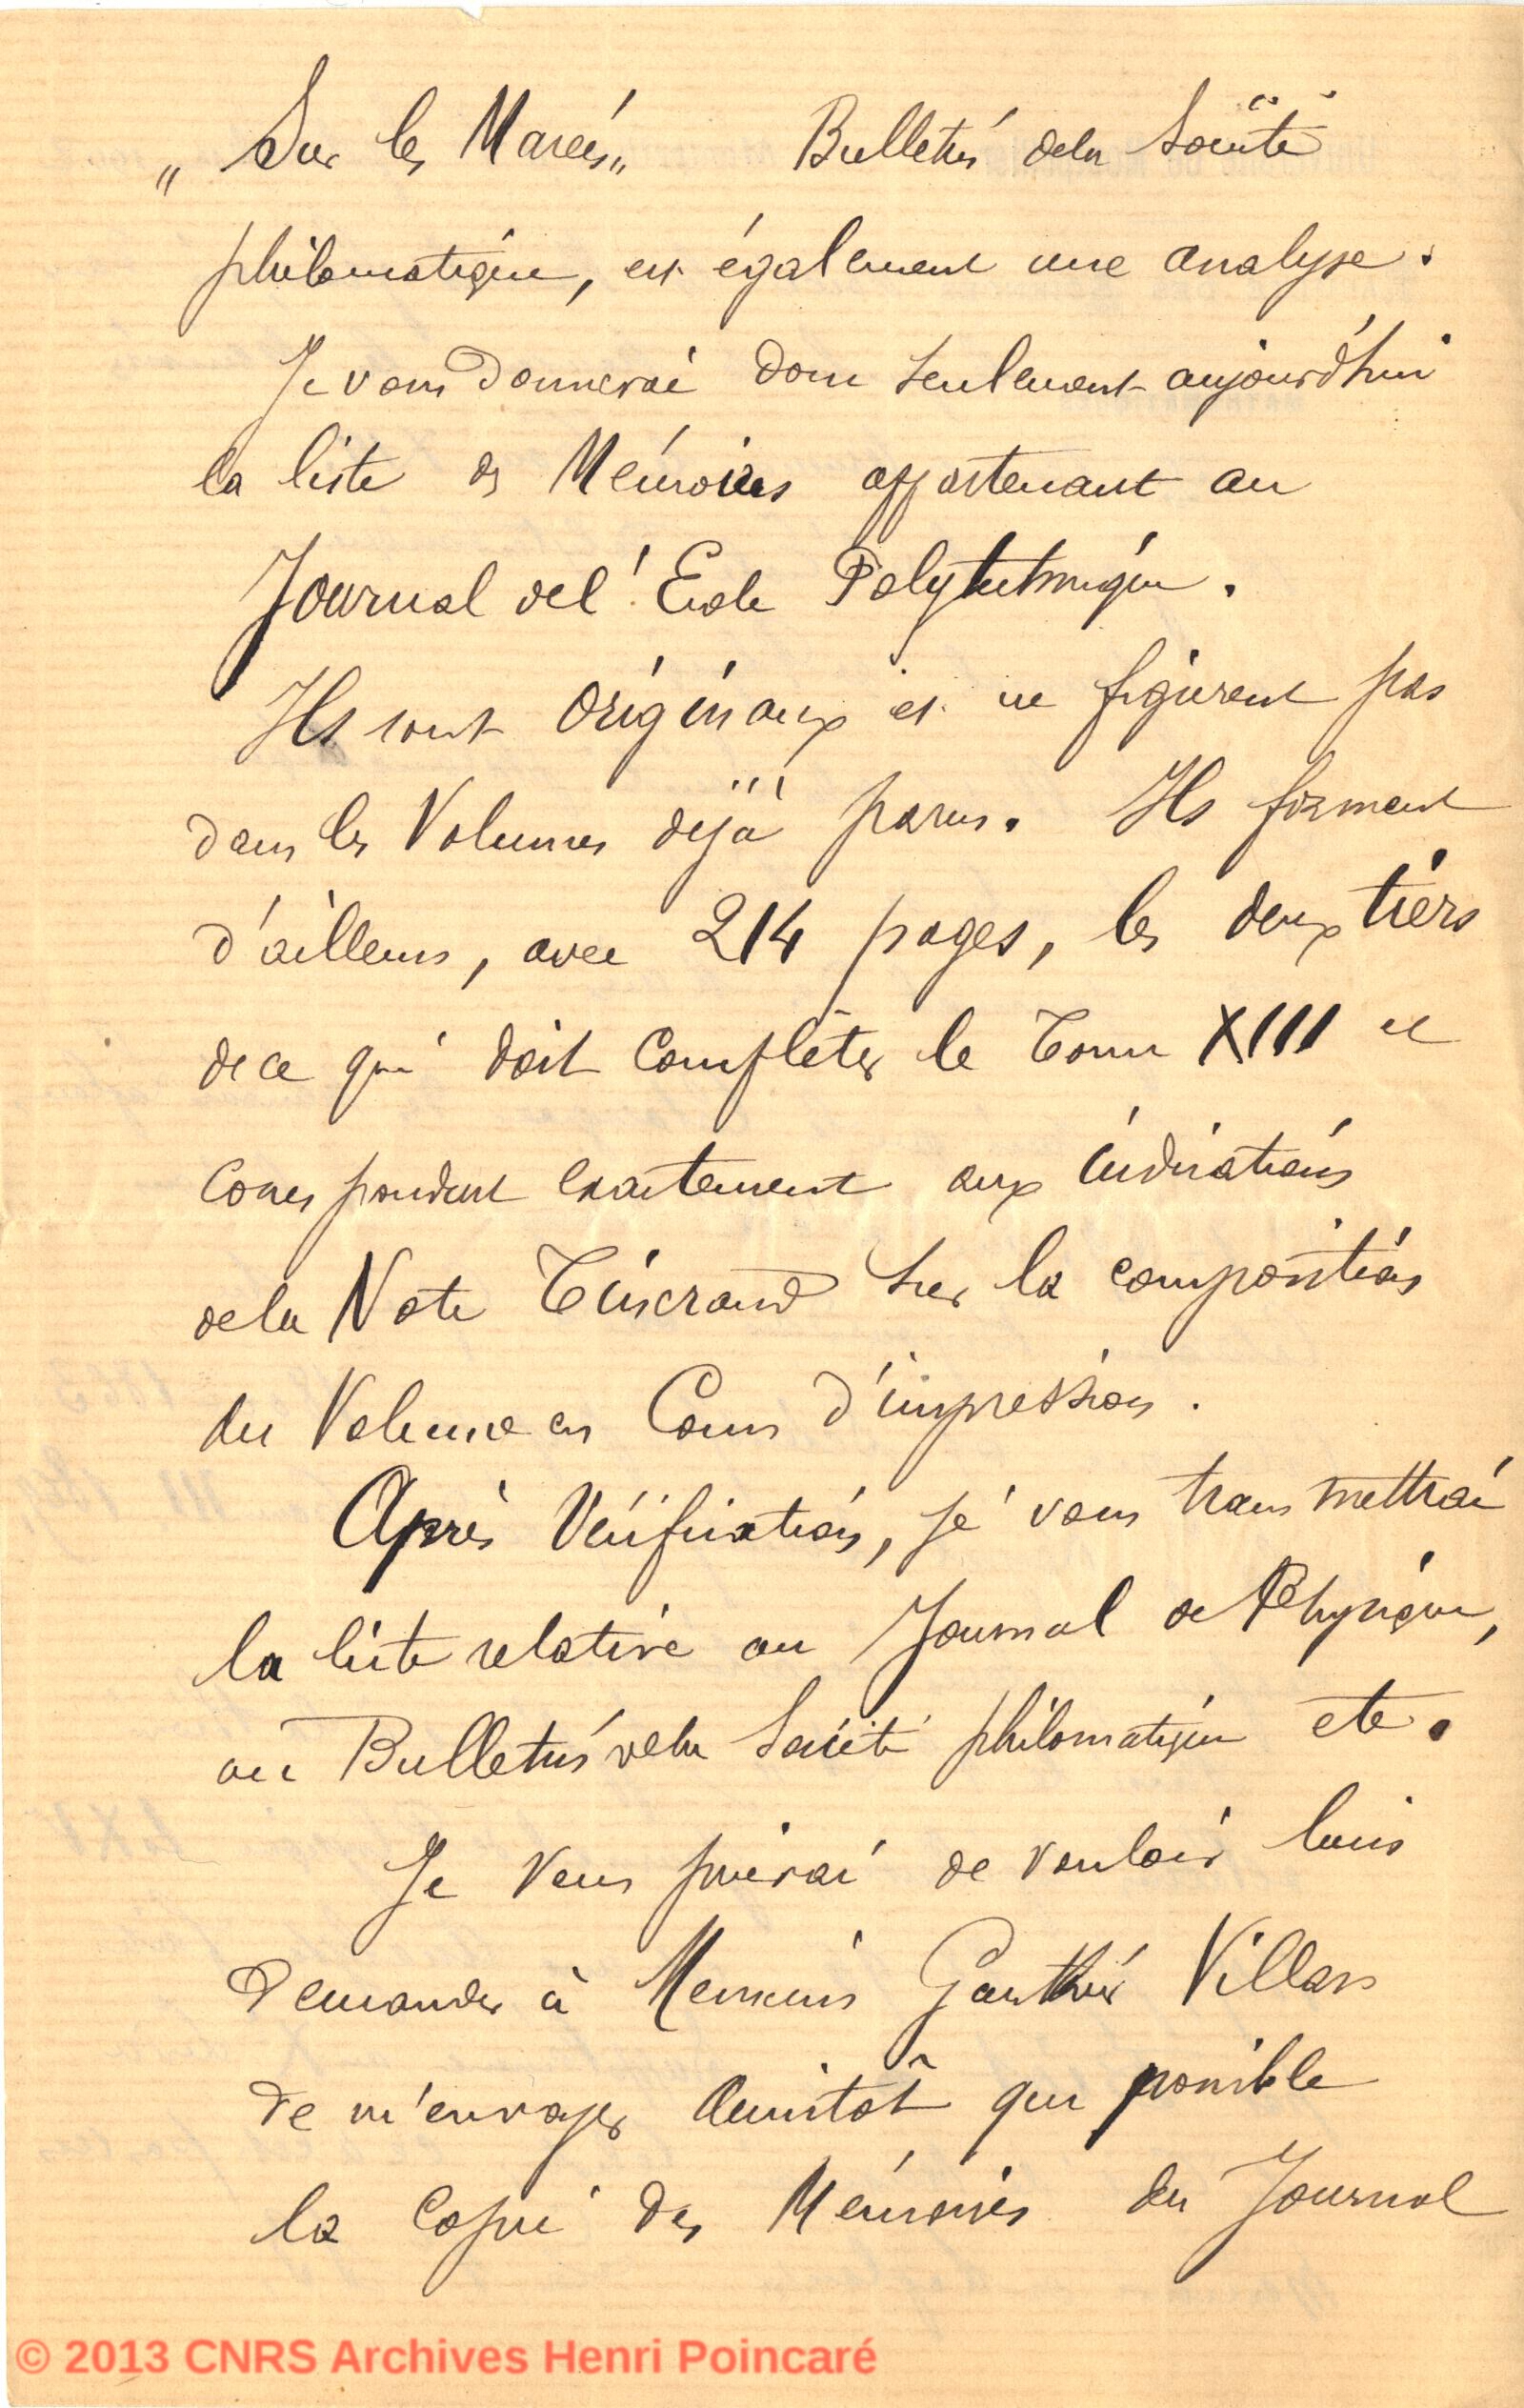 „ Sur les Marées „ Bulletin de la Société
philomatique, est également une analyse.
Je vous donnerai donc seulement aujourd'hui
la liste des Mémoires appartenant au
Journal de l'École Polytechnique.
Ils sont originaux et ne figurent pas
dans les Volumes déjà parus. Ils forment
d'ailleurs, avec 214 pages, les deux tiers
de ce qui doit complèter le Tome XIII et
correspondent exactement aux indications
de la Note Tisserand sur la composition
du Volume en Cours d'impression.
Après Vérification, je vous transmettrai
la liste relative au Journal de Physique,
au Bulletin de la Société philomatique etc.
Je vous prierai de vouloir bien
demander à Messieurs Gauthier Villars
de m'envoyer aussitôt que possible
la Copie des Mémoires du Journal
© 2013 CNRS Archives Henri Poincaré